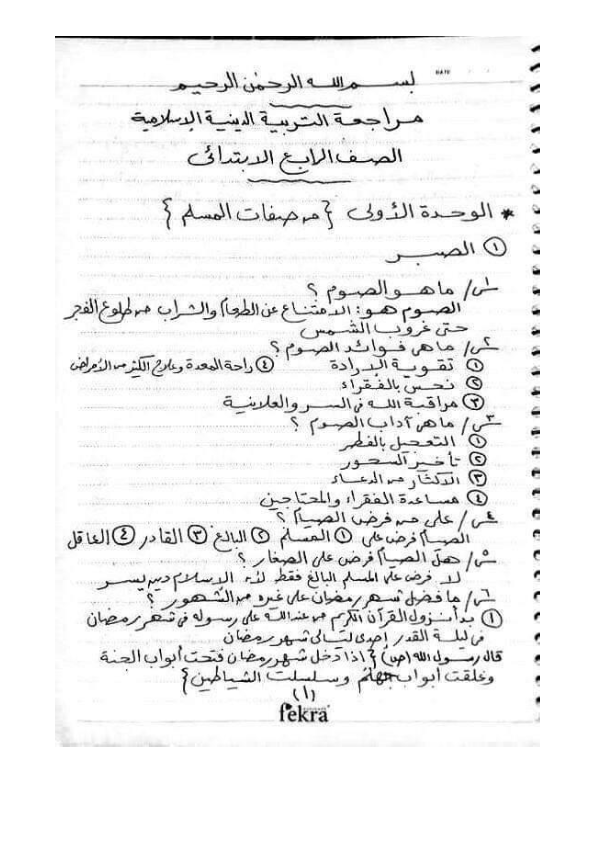 DATE
بسم الله الرحمن الرحيم
مراجعة التربية الدينية الإسلامية
الصف الرابع الابتدائى
* الوحدة الأولى { من صفات المسلم }
① الصبر
س١/ ما هو الصوم ؟
الصوم هو: الامتناع عن الطعام والشراب من طلوع الفجر
حتى غروب الشمس
س٢/ ما هى فوائد الصوم ؟
① تقوية الإرادة ④ راحة المعدة وعلاج الكثير من الأمراض
② نحس بالفقراء
③ مراقبة الله فى السر والعلانية
س٣/ ما هى آداب الصوم ؟
① التعجيل بالفطر
② تأخير السحور
③ الاكثار من الدعاء
④ مساعدة الفقراء والمحتاجين
س٤/ على من فرض الصيام ؟
الصيام فرض على ① المسلم ② البالغ ③ القادر ④ العاقل
س٥/ هل الصيام فرض على الصغار ؟
لا فرض على المسلم البالغ فقط لأن الإسلام دين يسر
س٦/ ما فضل شهر رمضان على غيره من الشهور ؟
① بدأ نزول القرآن الكريم من عند الله على رسوله فى شهر رمضان
فى ليلة القدر إحدى ليالى شهر رمضان
قال رسول الله (ص) { اذا دخل شهر رمضان فتحت أبواب الجنة
وغلقت أبواب جهنم وسلسلت الشياطين }
(١)
fekra